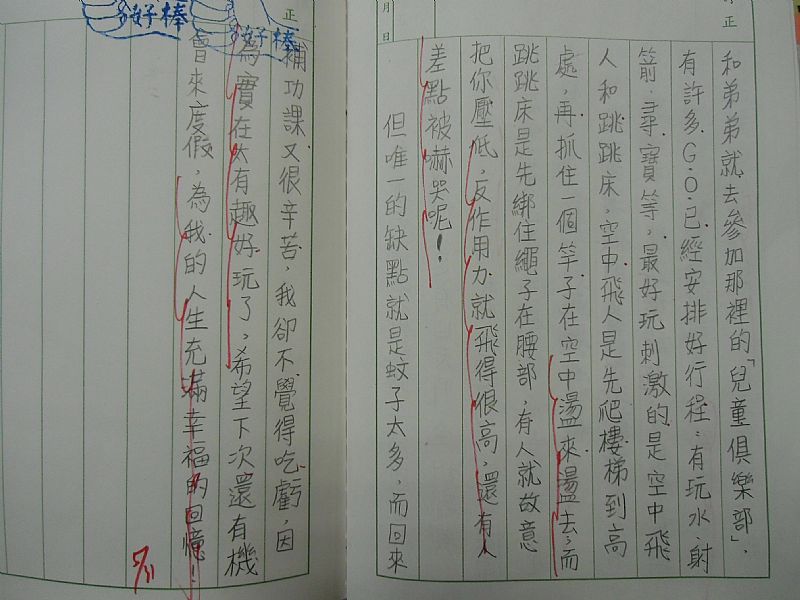 和弟弟就去參加那裡的「兒童俱樂部」,
有許多G.O.已經安排好行程:有玩水、射
箭、尋寶等,最好玩刺激的是空中飛
人和跳跳床,空中飛人是先爬樓梯到高
處,再抓住一個竿子在空中盪來盪去;而
跳跳床是先綁住繩子在腰部,有人就故意
把你壓低,反作用力就飛得很高,還有人
差點被嚇哭呢!
但唯一的缺點就是蚊子太多,而回來
補功課又很辛苦,我卻不覺得吃虧,因
為實在太有趣好玩了,希望下次還有機
會來度假,為我的人生充滿幸福的回憶!
5/11
好棒
好棒
正
月 日
正